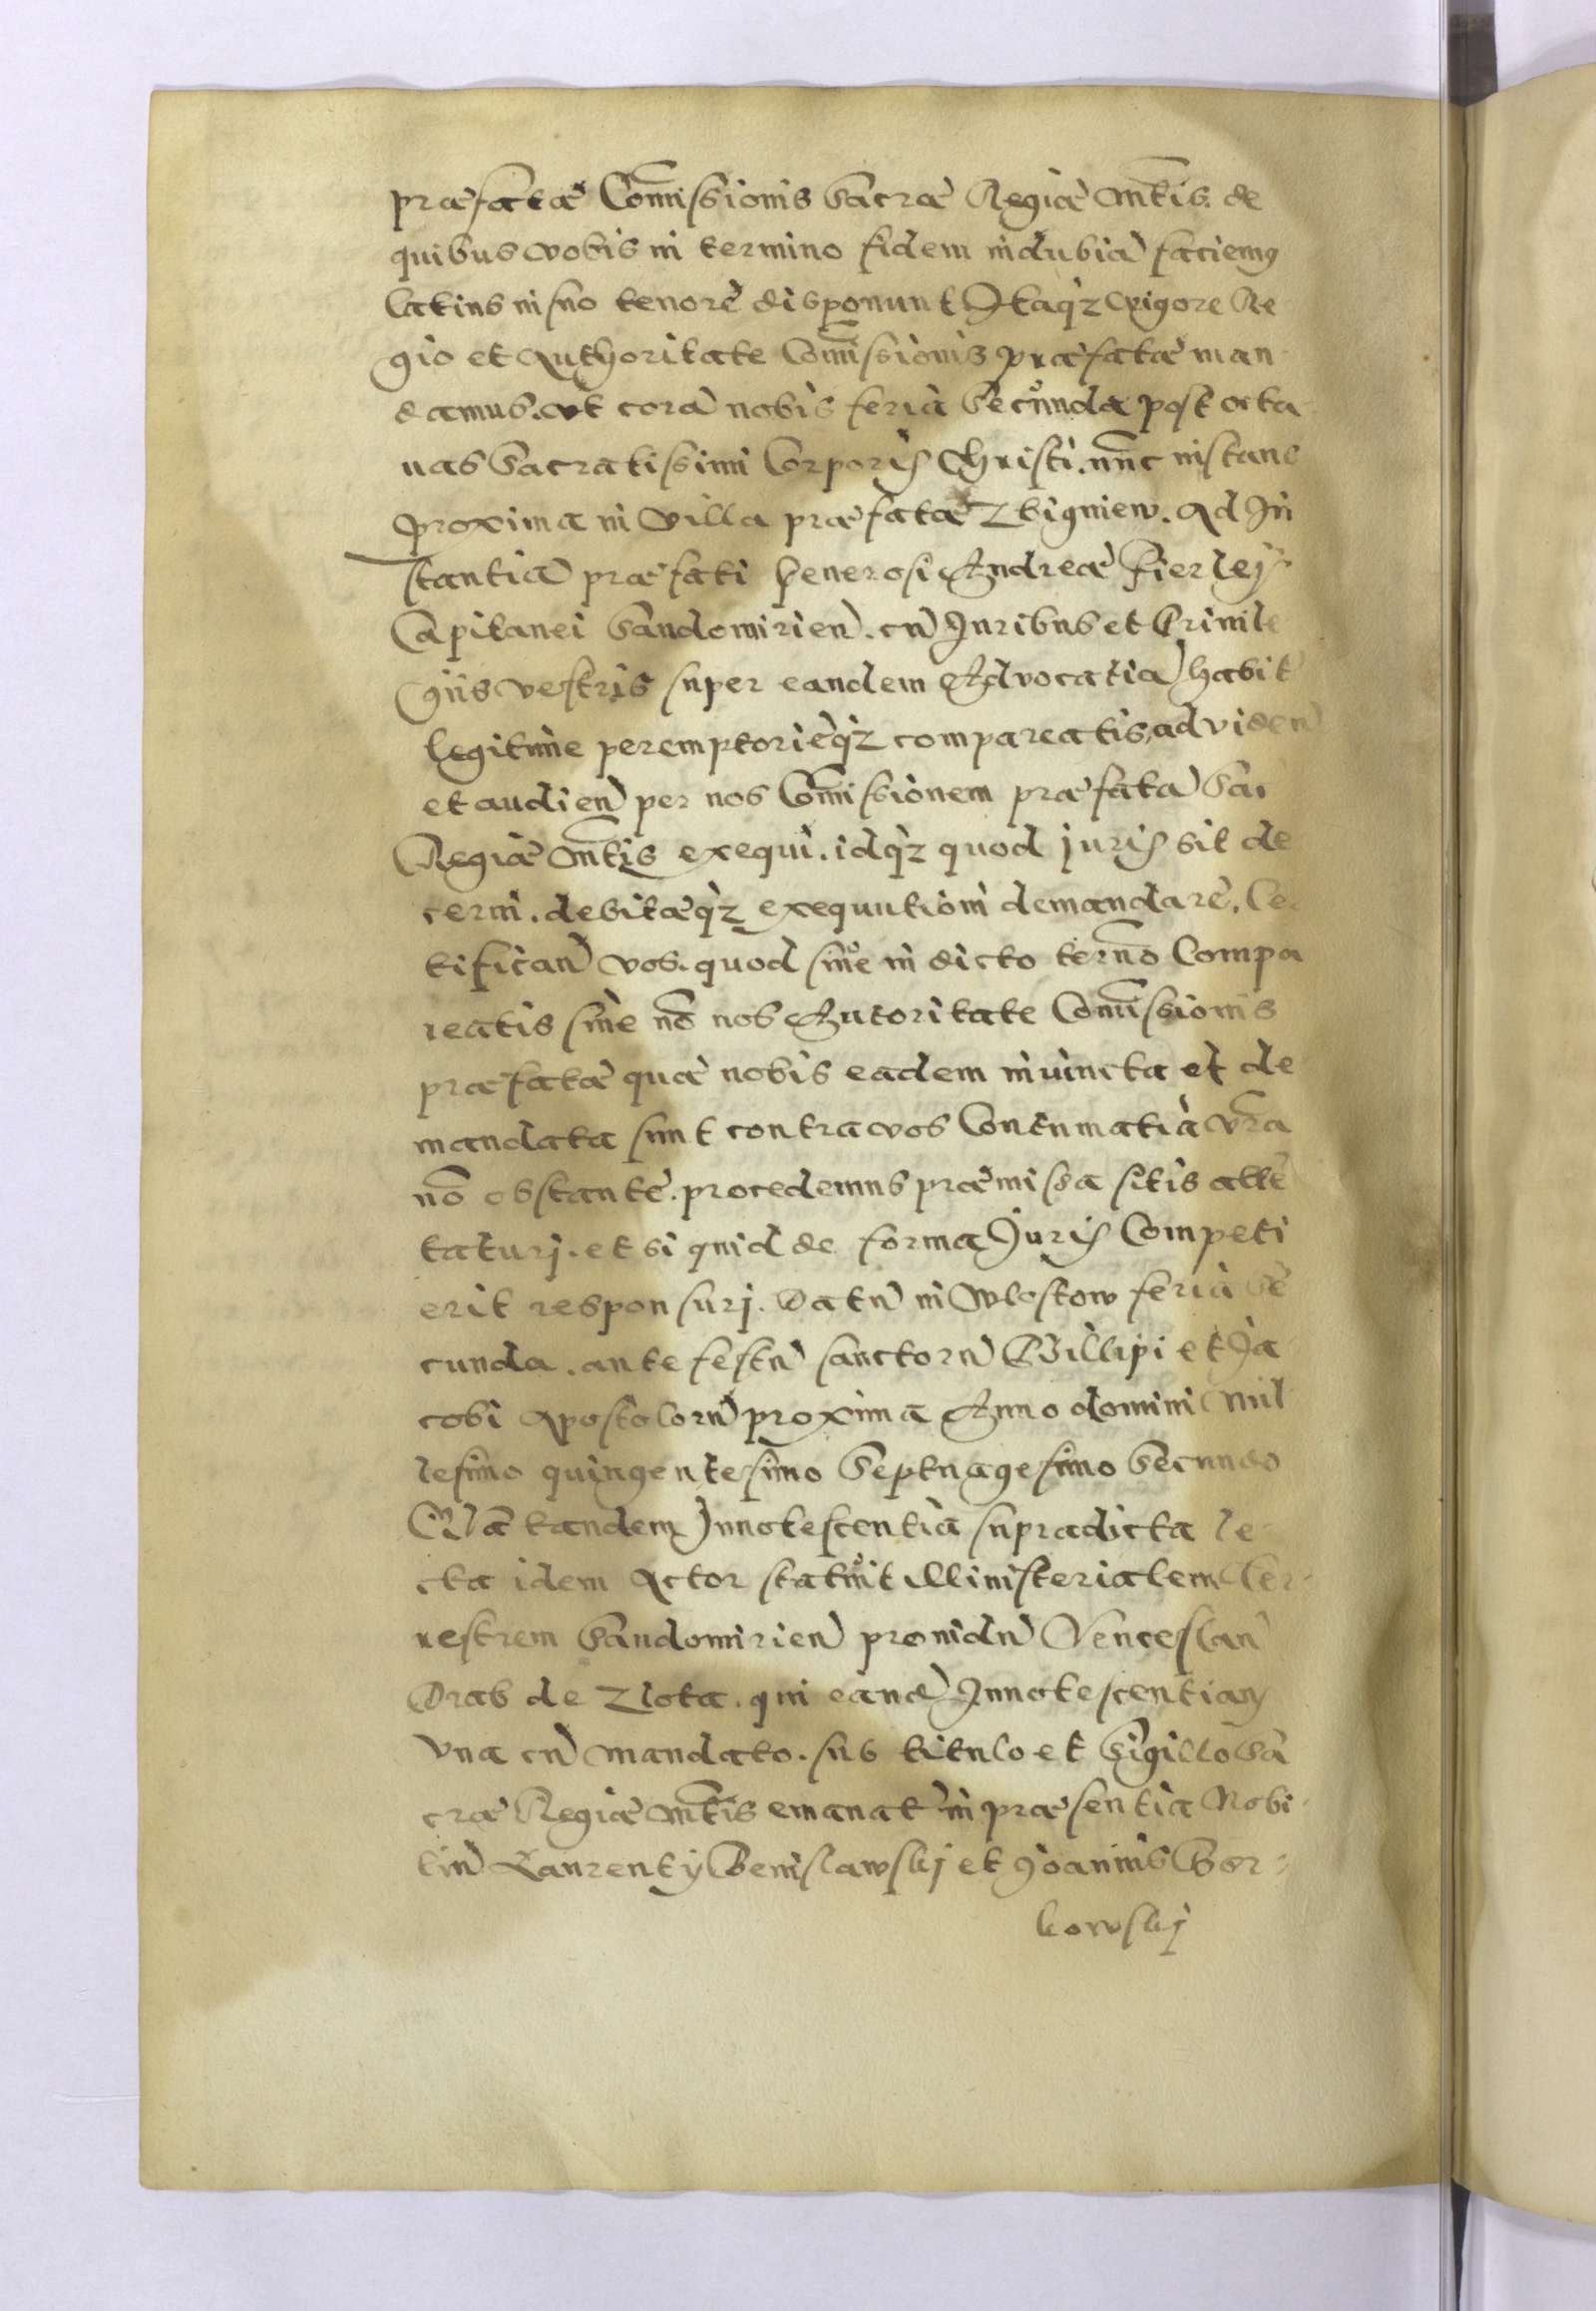 præfatæ Com̃issionis Sacræ Regiæ Mt̃is. de
quibus vobis in termino fidem indubiã faciemꝰ
latius in suo tenorẽ disponunt Itaqꝫ vigore Re
gio et Authoritate Com̃issionis præfatæ man
damus. vt corã nobis feria Secunda post octa
uas Sacratissimi Corporis Christi. nunc instans
proxima in Villa præfata Zbigniew. Ad In
stantiã præfati Generosi Andreæ Fierleÿ
Capitanei Sandomirien̄. cũ Iuribus et Priuile
giis vestris super eandem Advocatiã habit̃
legitime peremptorieqꝫ compareatis, ad viden̄
et audien̄ per nos Com̃issionem præfatã Sac
Regiæ Mt̃is exequi. idqꝫ quod juris sit de
cerni. debitæqꝫ exequutioni demandarẽ. Cer
tifican̄ vos. quod siue in dicto term̃o Compa
reatis siue nõ nos Autoritate Com̃issionis
præfatæ quæ nobis eadem iniuncta et de
mandata sunt contra vos Contumatia vr̃a
nõ obstantẽ. procedemus præmissa sitis atte
taturj. et si quid de forma Juris Competi
erit responsurj. Datũ in Wlostow feria Se
cunda. ante festũ sanctorũ Philippi et Ja
cobi Apostolorũ proxima Anno domini Mil
lesimo quingentesimo Septuagesimo Secundo
Quã tandem Innotescentia supradicta le
cta idem Actor statuit Ministerialem Ter
restrem Sandomirien̄ prouidũ Venceslaũ
Drab de Zlota. qui eandẽ Innotescentiam
vna cũ Mandato. sub titulo et Sigillo Sa
cræ Regiæ Mt̃is emanat̃ in præsentia Nobi
liũ Laurentÿ Benislawskj et Joannis Bor=
kowskj